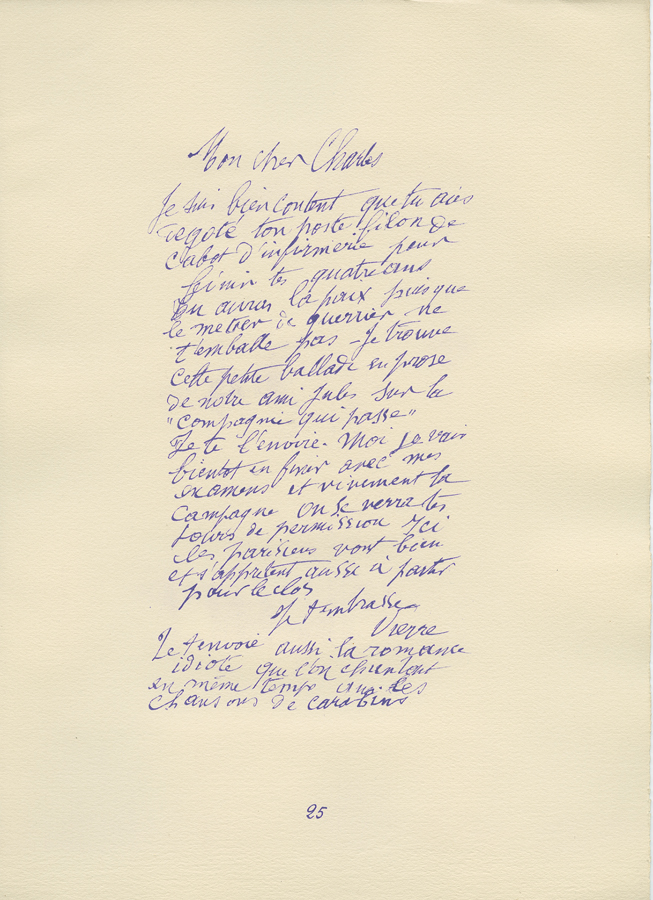 Mon cher Charles
Je suis bien content que tu aies
degoté ton poste filon de
Cabot d'infirmerie pour
finir tes quatre ans
Tu auras la paix puisque
le metier de guerrier ne
t'emballe pas - Je trouve
cette petite ballade en prose
de notre ami Jules sur la
"compagnie qui passe"
Je te l'envoie. Moi je vais
bientot en finir avec mes
examens et vivement la
campagne on se verra tes
jours de permission Ici
les parisiens vont bien
et s'appretent aussi à partir
pour le clos
Je t'embrasse
Pierre
Je t'envoie aussi la romance
idiote que l'on chantait
en même temps que les
chansons de carabins
25